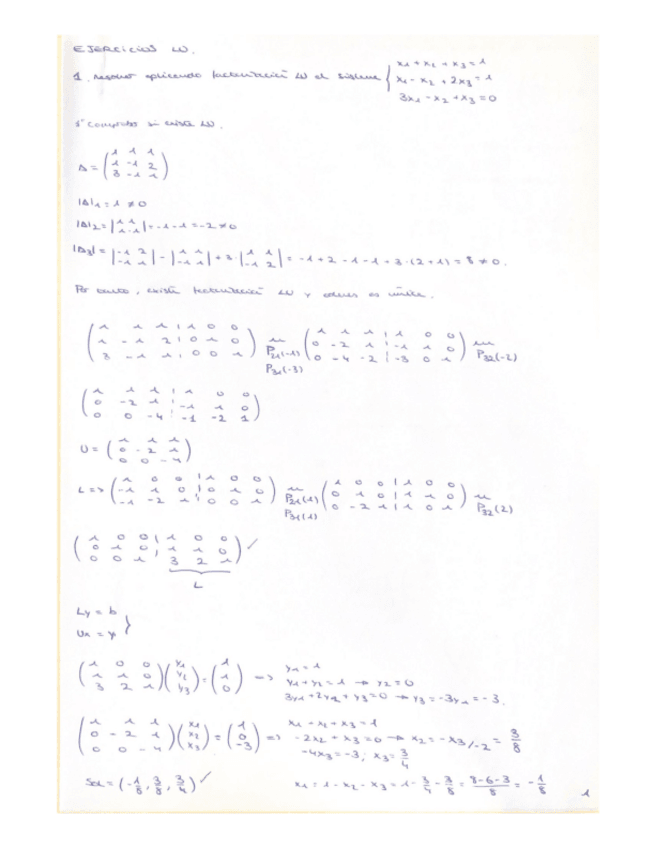 EJERCICIOS LU.
1. resolver aplicando factorización LU el sistema { x1 + x2 + x3 = 1
x1 - x2 + 2x3 = 1
3x1 - x2 + x3 = 0
1º Comprobar si existe LU.
A = ( 1 1 1
1 -1 2
3 -1 1 )
|A|1 = 1 ≠ 0
|A|2 = | 1 1
1 -1 | = -1 -1 = -2 ≠ 0
|A3| = | -1 2
-1 1 | - | 1 1
-1 1 | + 3 · | 1 1
-1 2 | = -1 + 2 - 1 - 1 + 3 · (2+1) = 8 ≠ 0.
Por tanto, existe factorización LU y además es única.
( 1 1 1 | 1 0 0
1 -1 2 | 0 1 0
3 -1 1 | 0 0 1 ) P21(-1) P31(-3) ( 1 1 1 | 1 0 0
0 -2 1 | -1 1 0
0 -4 -2 | -3 0 1 ) P32(-2)
( 1 1 1 | 1 0 0
0 -2 1 | -1 1 0
0 0 -4 | -1 -2 1 )
U = ( 1 1 1
0 -2 1
0 0 -4 )
L => ( 1 0 0 | 1 0 0
-1 1 0 | 0 1 0
-1 -2 1 | 0 0 1 ) P21(1) P31(1) ( 1 0 0 | 1 0 0
0 1 0 | 1 1 0
0 -2 1 | 1 0 1 ) P32(2)
( 1 0 0 | 1 0 0
0 1 0 | 1 1 0
0 0 1 | 3 2 1 ) ✓
L
Ly = b
Ux = y }
( 1 0 0
1 1 0
3 2 1 ) ( y1
y2
y3 ) = ( 1
1
0 ) => y1 = 1
y1 + y2 = 1 → y2 = 0
3y1 + 2y2 + y3 = 0 → y3 = -3y1 = -3.
( 1 1 1
0 -2 1
0 0 -4 ) ( x1
x2
x3 ) = ( 1
0
-3 ) => x1 + x2 + x3 = 1
-2x2 + x3 = 0 → x2 = -x3/-2 = 3/8
-4x3 = -3; x3 = 3/4
Sol = ( -1/8, 3/8, 3/4 ) ✓ x1 = 1 - x2 - x3 = 1 - 3/4 - 3/8 = 8-6-3/8 = -1/8
1